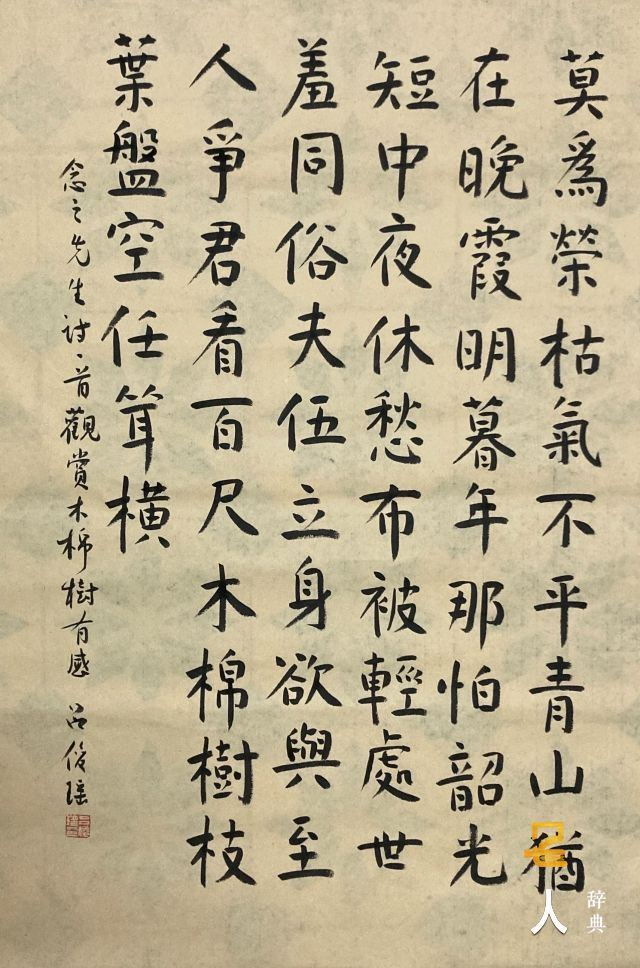 莫為榮枯氣不平青山猶
在晚霞明暮年那怕韶光
短中夜休愁布被輕處世
羞同俗夫伍立身欲與至
人爭君看百尺木棉樹枝
葉盤空任耸橫
念之先生诗一首觀賞木棉樹有感 呂俊瑶
名人
辞典